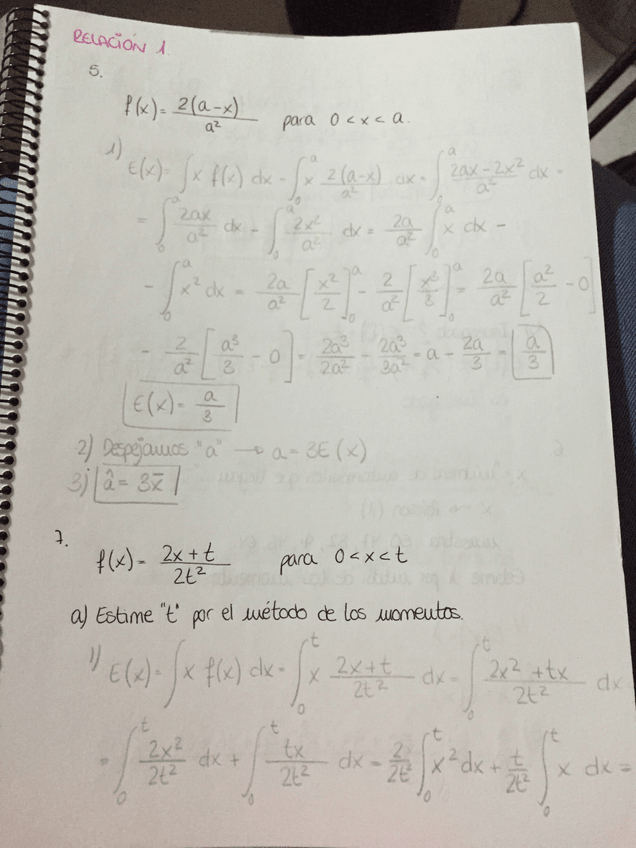 RELACIÓN 1.
5.
f(x) = 2(a-x)/a² para 0 < x < a.
1) E(x) = ∫ x f(x) dx = ∫₀ᵃ x 2(a-x)/a² dx = ∫₀ᵃ (2ax - 2x²)/a² dx =
= ∫₀ᵃ 2ax/a² dx - ∫₀ᵃ 2x²/a² dx = 2a/a² ∫₀ᵃ x dx -
- ∫₀ᵃ x² dx = 2a/a² [x²/2]₀ᵃ - 2/a² [x³/3]₀ᵃ = 2a/a² [a²/2 - 0]
- 2/a² [a³/3 - 0] = 2a³/2a² - 2a³/3a² = a - 2a/3 = a/3
E(x) = a/3
2) Despejamos "a" → a = 3E(x)
3) â = 3x̄
7.
f(x) = (2x + t)/2t² para 0 < x < t
a) Estime "t" por el método de los momentos.
1) E(x) = ∫ x f(x) dx = ∫₀ᵗ x (2x+t)/2t² dx = ∫₀ᵗ (2x² + tx)/2t² dx
= ∫₀ᵗ 2x²/2t² dx + ∫₀ᵗ tx/2t² dx = 2/2t² ∫₀ᵗ x² dx + t/2t² ∫₀ᵗ x dx =